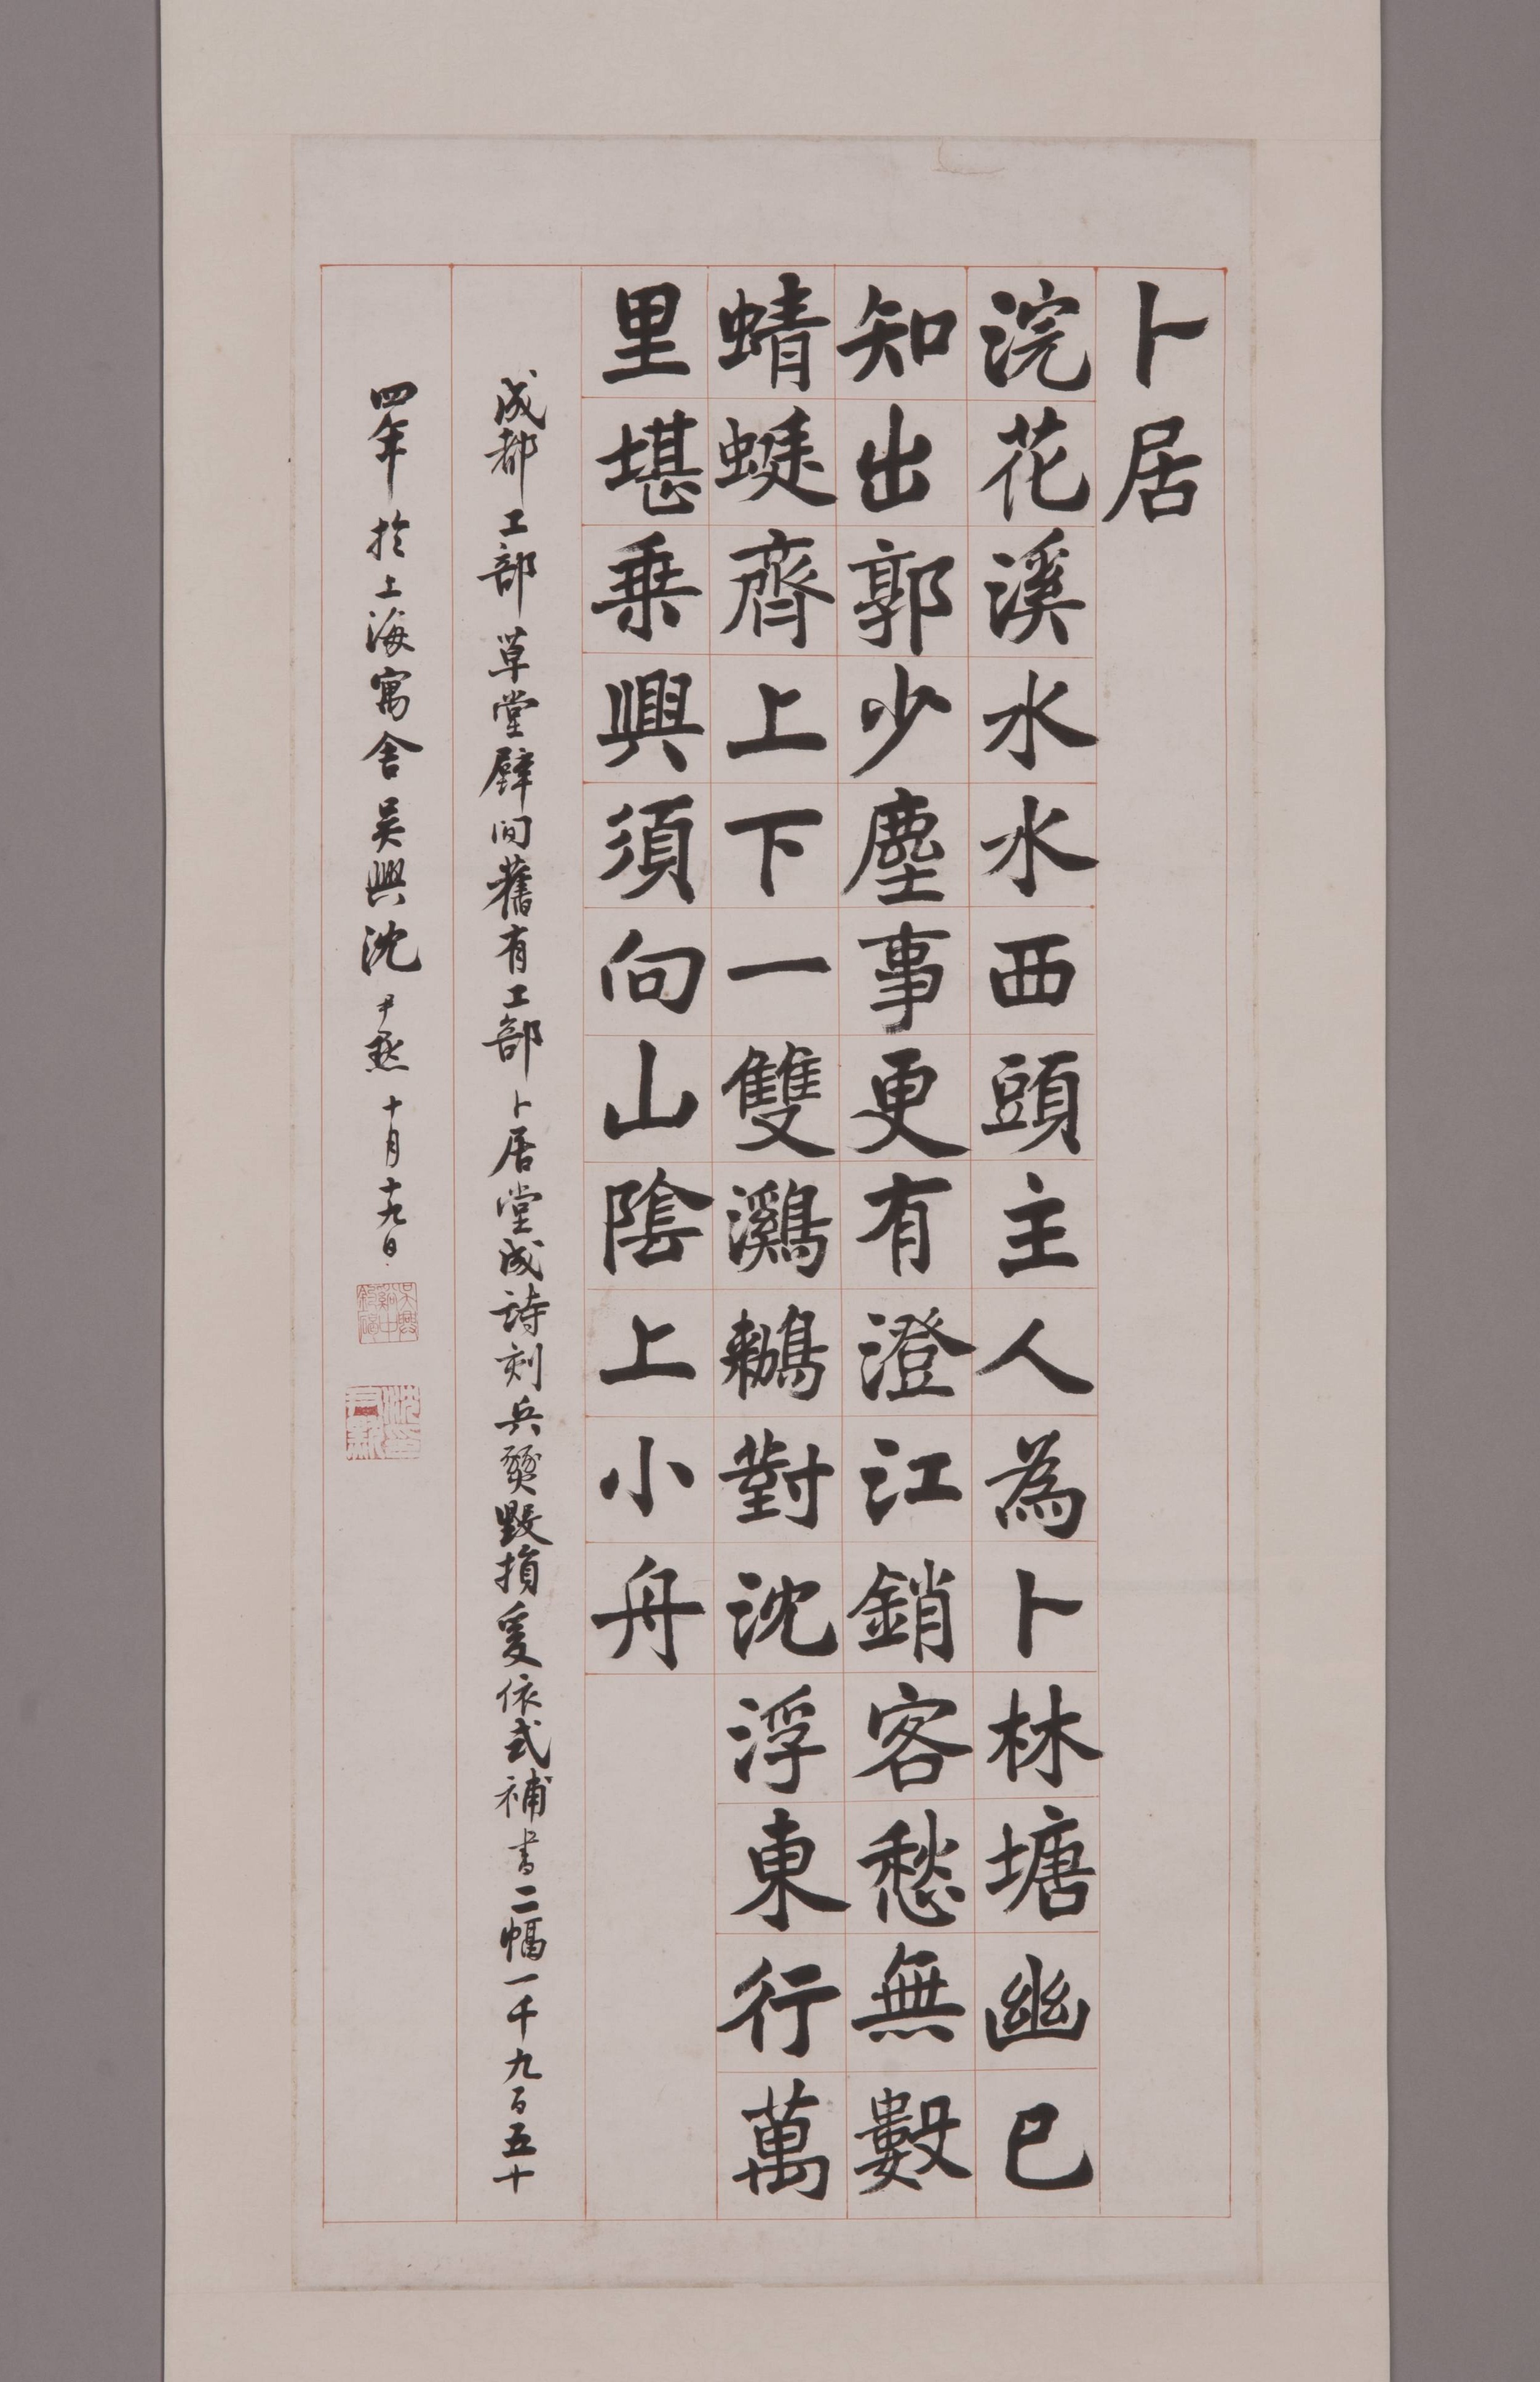 卜居
浣花溪水水西頭主人為卜林塘幽已
知出郭少塵事更有澄江銷客愁無數
蜻蜓齊上下一雙鸂鶒對沈浮東行萬
里堪乗興須向山陰上小舟
成都工部草堂壁间舊有工部卜居堂成詩刻兵燹毀損爰依式補書二幅一千九百五十
四年於上海寓舍吴興沈尹默十月十九日